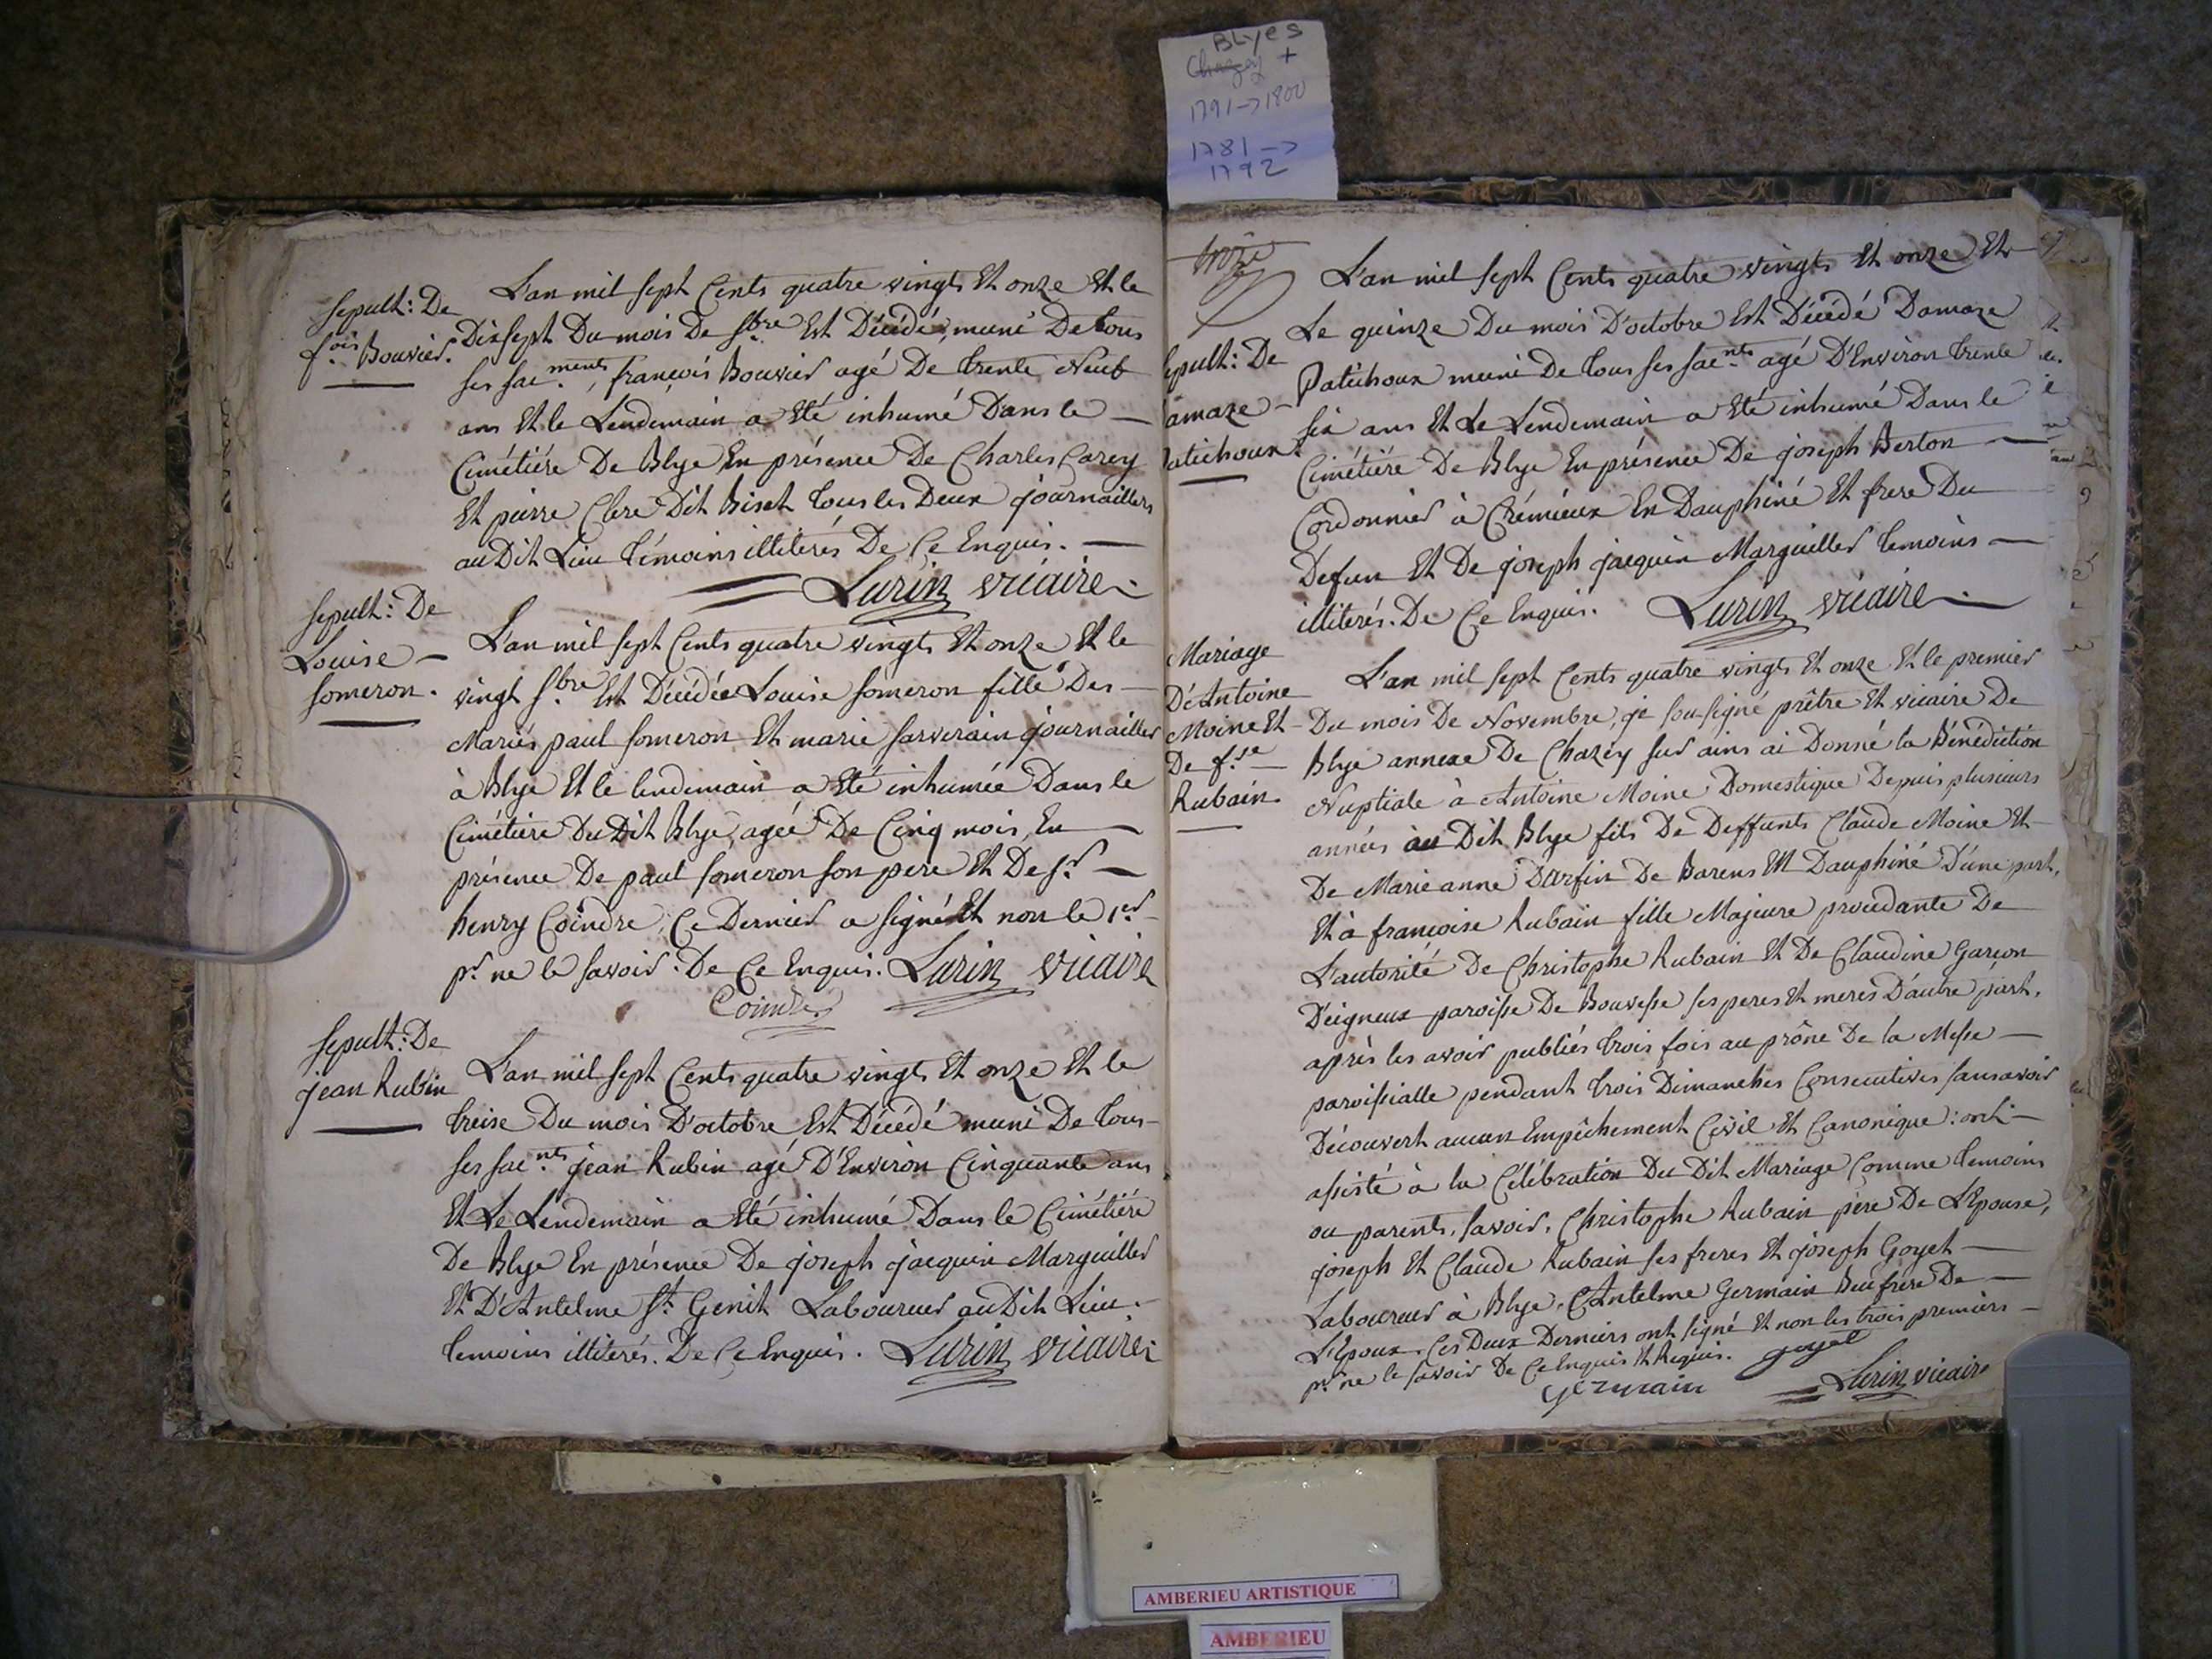 BLyes
Chazey +
1791 -> 1800
1781 ->
1792
Sepult: De
f.ois Bouvier.
L'an mil sept Cents quatre vingts Et onze Et le
Dixsept Du mois De 7bre Est Décédé, muni De tous
ses sac.ments, françois Bouvier agé De trente Neuf
ans Et le Lendemain a Eté inhumé Dans le
Cimétiére De Blye En présence De Charles Carey
Et pierre Clerc Dit Biset tous les Deux journaillers
au Dit Lieu témoins illiterés De Ce Enquis.
Lurin vicaire
Sepult: De
Louise
Someron.
L'an mil sept Cents quatre vingts Et onze Et le
vingt 7bre Est Décédée Louise Someron fille Des
Mariés paul Someron Et marie Sarverain journailler
à Blye Et le lendemain a Eté inhumée Dans le
Cimétiére Du Dit Blye, agée De Cinq mois, En
présence De paul Someron son pere Et De s.r
henry Coindre, Ce Dernier a signé Et non le 1.er
p.r ne le savoir. De Ce Enquis. Lurin vicaire
Coindre
Sepult: De
jean Rubin
L'an mil sept Cents quatre vingts Et onze Et le
treise Du mois D'octobre Est Décédé muni De tous
ses sac.nts jean Rubin agé D'Environ Cinquante ans
Et Le Lendemain a Eté inhumé Dans le Cimétiére
De Blye En présence De joseph jacquin Marguiller
Et D'Antelme S.t Genit Laboureur au Dit Lieu.
temoins illiterés. De Ce Enquis. Lurin vicaire
L'an mil sept Cents quatre vingts Et onze Et
Le quinze Du mois D'octobre Est Décédé Damaze
Sepult: De
Damaze
Patichoux
Patichoux muni De tous ses sac.nts agé D'Environ trente
six ans Et Le Lendemain a Eté inhumé Dans le
Cimétiére De Blye En présence De joseph Berton
Cordonnier à Crémieux En Dauphiné Et frere Du
Défun Et De joseph jacquin Marguiller temoins
illiterés. De Ce Enquis. Lurin vicaire
Mariage
D'Antoine
Moine Et
De f.se
Rubain.
L'an mil sept Cents quatre vingts Et onze Et le premier
Du mois De Novembre, je sousigné prêtre Et vicaire De
Blye annexe De Chazey sur ains ai Donné la Bénédiction
Nuptiale à Antoine Moine Domestique Depuis plusieurs
années au Dit Blye fils De Deffunts Claude Moine Et
De Marie anne Darfin De Barens En Dauphiné D'une part,
Et à françoise Rubain fille Majeure procédante De
L'autorité De Christophe Rubain Et De Claudine Garçon
D'eigneux paroisse De Bouvesse ses peres Et meres D'autre part,
après les avoir publiés trois fois au prône De la Messe
paroissialle pendant trois Dimanches Consecutives sans avoir
Découvert aucun Empêchement Civil Et Canonique: ont
assisté à la Célébration Du Dit Mariage Comme temoins
ou parents, savoir, Christophe Rubain père De L'Epouse,
joseph Et Claude Rubain ses freres Et joseph Goyet
Laboureur à Blye, Antelme Germain Beufrere De
L'Epoux. Ces Deux Derniers ont signé Et non les trois premiers
p.r ne le savoir De Ce Enquis Et Requis. goyet
germain Lurin vicaire
AMBERIEU ARTISTIQUE
AMBERIEU